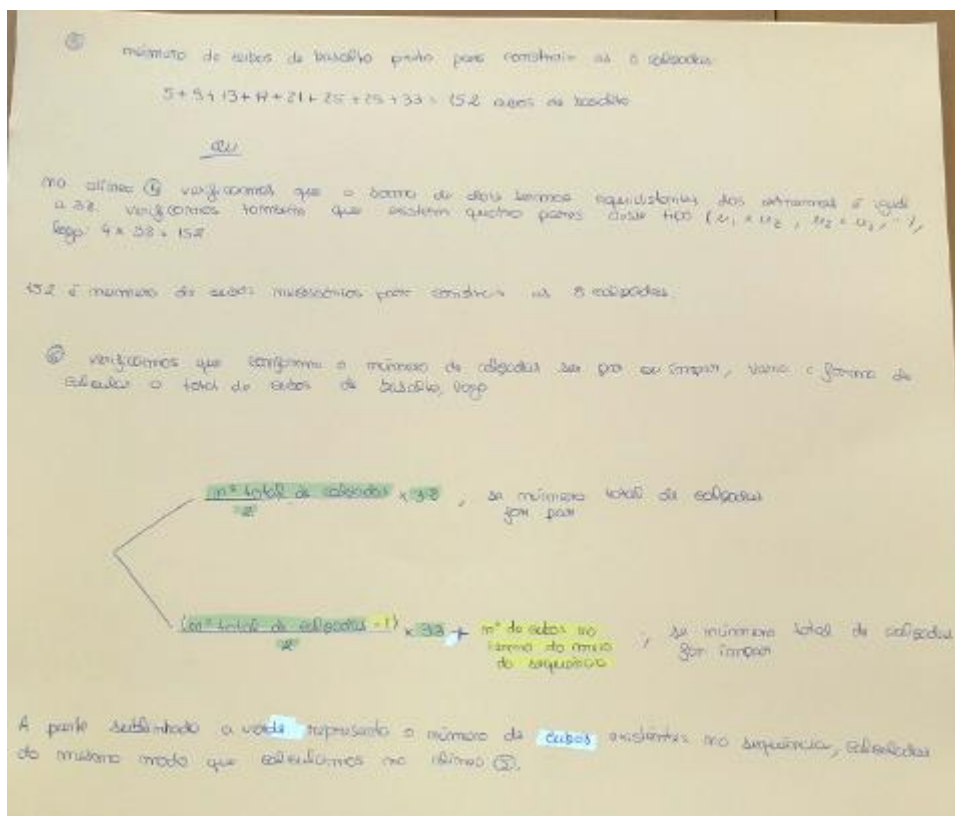 ⑤ número de cubos de basalto preto para construir as 8 calçadas
5+9+13+17+21+25+29+33 = 152 cubos de basalto
ou
na alínea ④ verificamos que a soma de dois termos equidistantes dos extremos é igual
a 38. verificamos também que existem quatro pares deste tipo
logo: 4 x 38 = 152
152 é número de cubos necessários para construir as 8 calçadas.
⑥ verificamos que conforme o número de calçadas ser par ou ímpar, varia a forma de
calcular o total de cubos de basalto, logo
nº total de calçadas x 38 , se número total de calçadas
2 for par
(nº total de calçadas - 1) x 38 + nº de cubos no , se número total de calçadas
2 termo do meio for ímpar
da sequência
A parte sublinhada a verde representa o número de cubos existentes na sequência, calculados
do mesmo modo que calculámos na alínea ⑤.